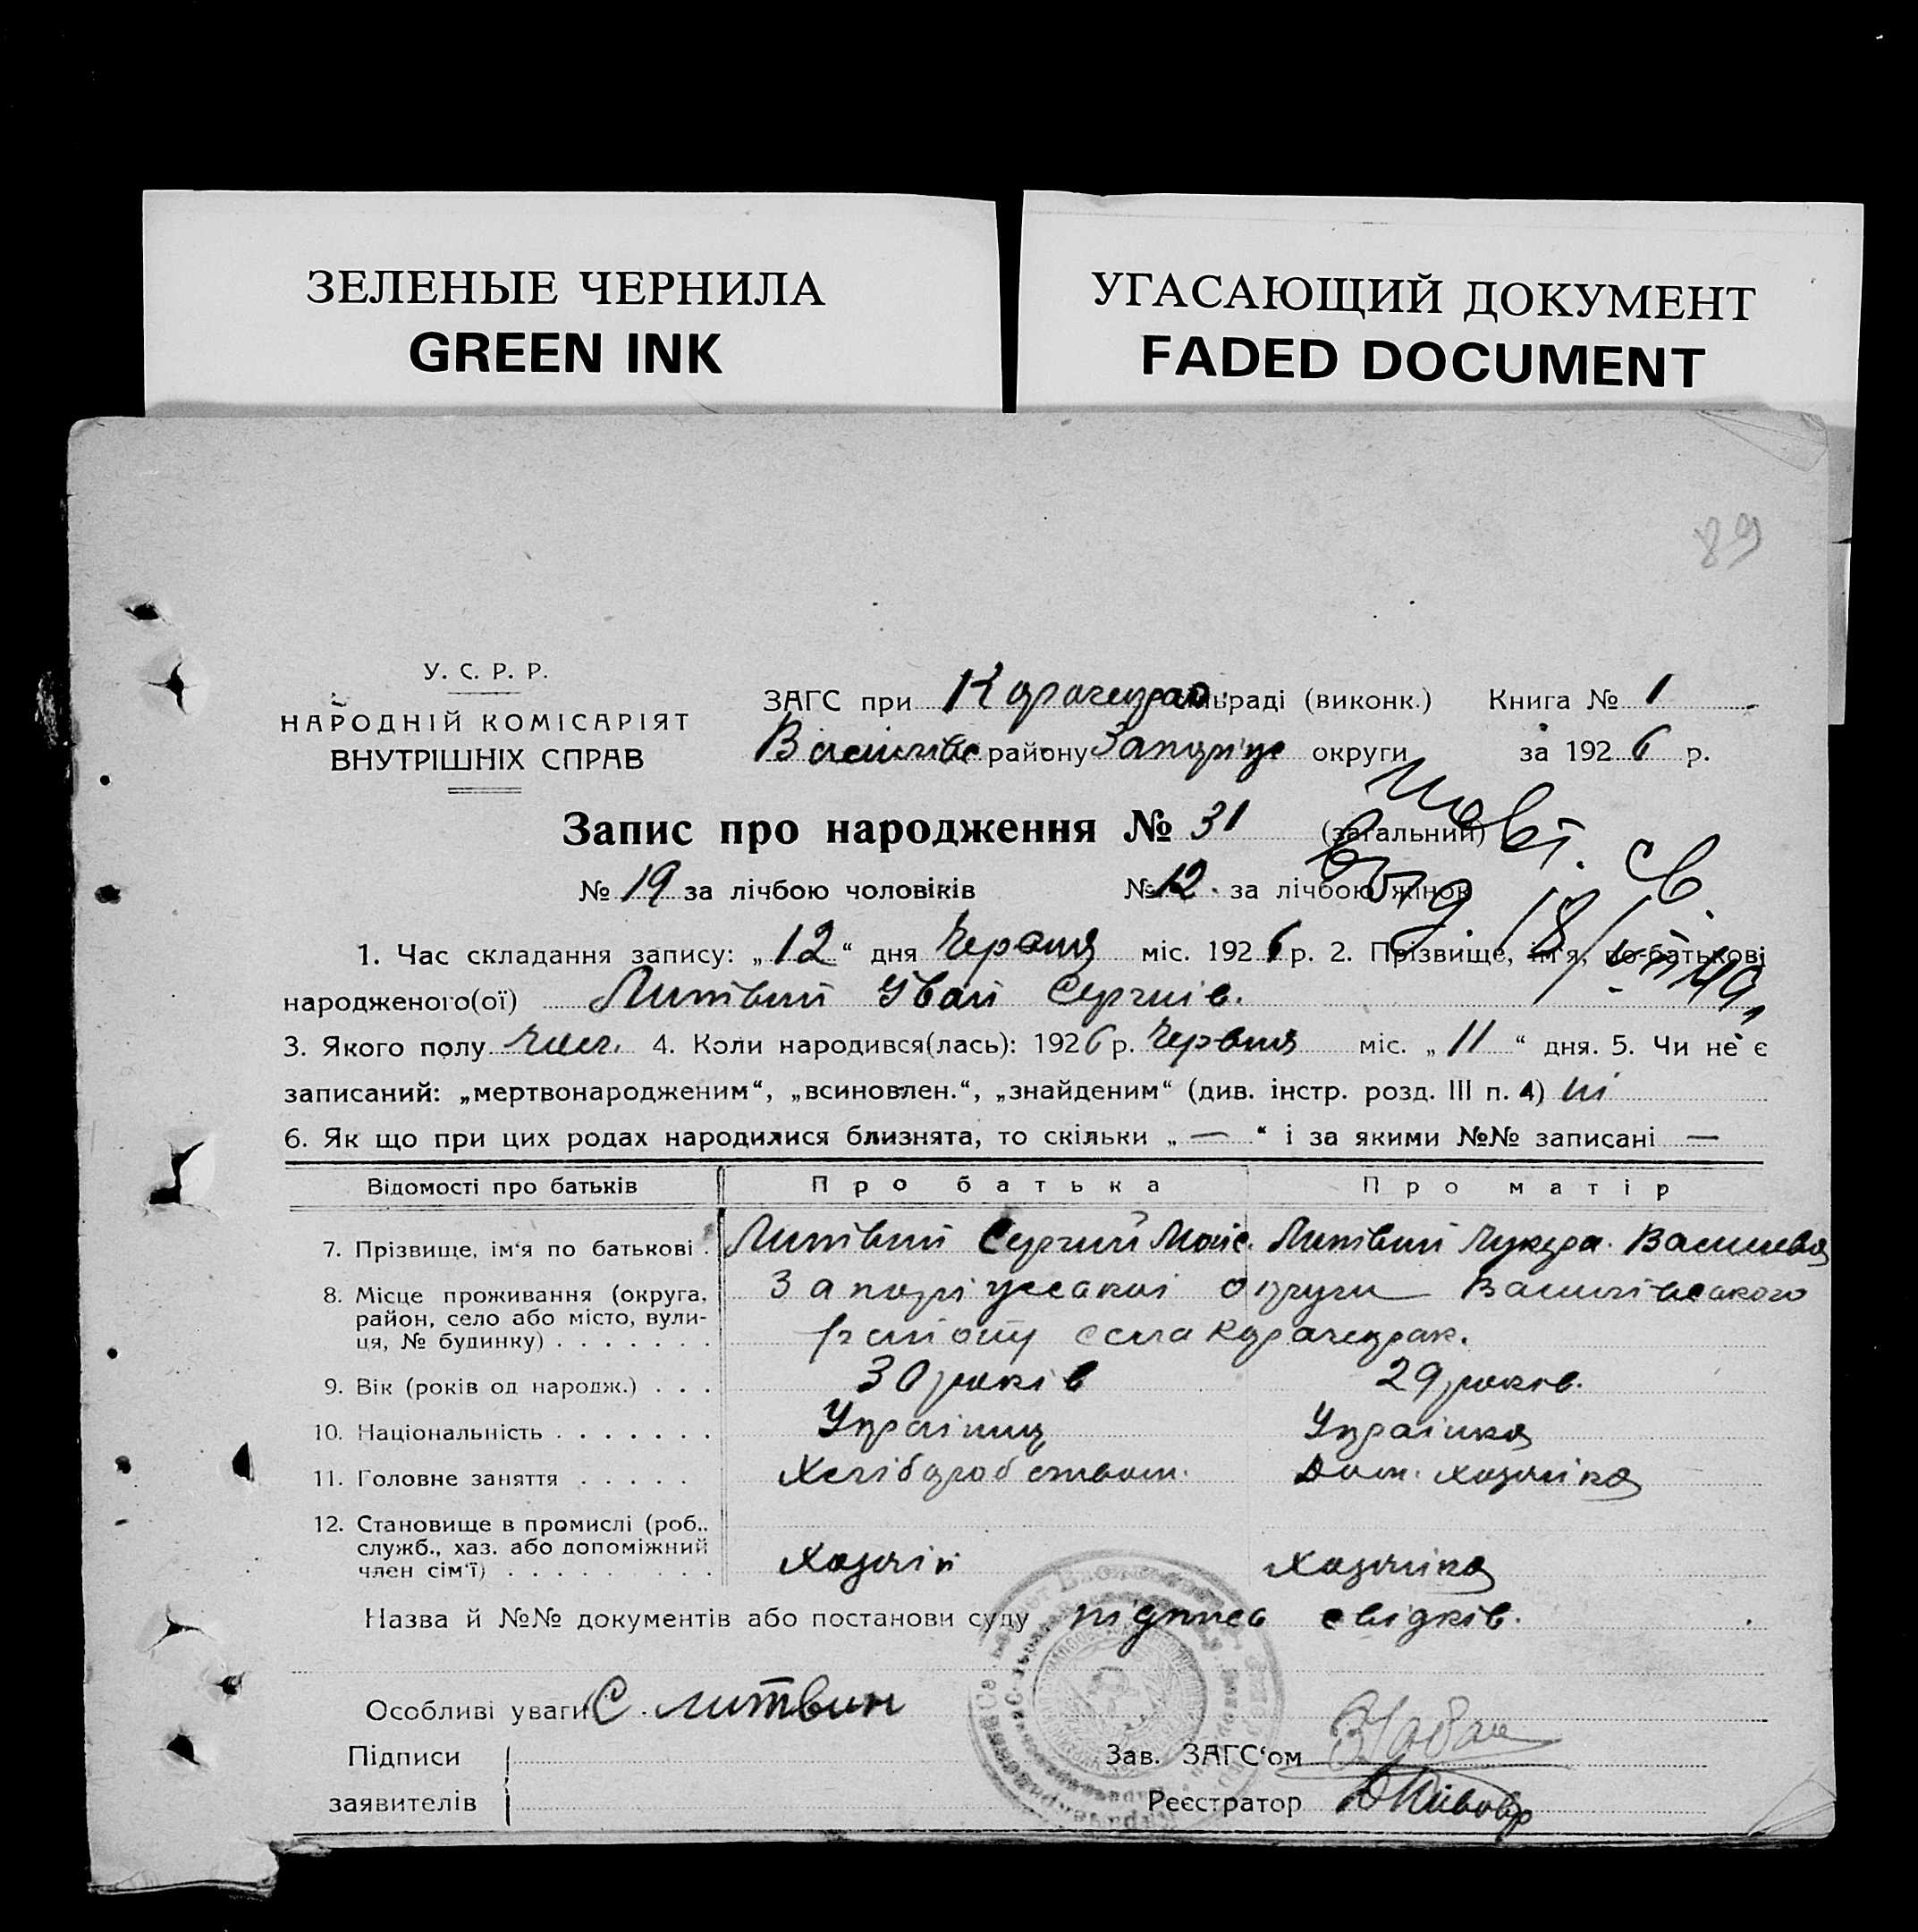 ЗЕЛЕНЫЕ ЧЕРНИЛА
GREEN INK
УГАСАЮЩИЙ ДОКУМЕНТ
FADED DOCUMENT
89
У. С. Р. Р.
НАРОДНІЙ КОМІСАРІЯТ
ВНУТРІШНІХ СПРАВ
ЗАГС при Карачекрак. сільраді (виконк.) Книга № 1
Василівс району Запоріж округи за 1926 р.
Запис про народження № 31 (загальний)
№ 19 за лічбою чоловіків № 12. за лічбою жінок
1. Час складання запису: „12“ дня Червня міс. 1926 р. 2. Прізвище, ім'я, по-батькові
народженого(ої) Литвин Іван Сергиїв.
3. Якого полу чол. 4. Коли народився(лась): 1926 р. Червня міс. „11“ дня. 5. Чи не є
записаний: „мертвонародженим“, „всиновлен.“, „знайденим“ (див. інстр. розд. III п. 4) ні
6. Як що при цих родах народилися близнята, то скільки „—“ і за якими №№ записані —
Відомості про батьків Про батька Про матір
7. Прізвище, ім'я по батькові . Литвин Сергий Мойс. Литвин Лукера. Василева
8. Місце проживання (округа, Запоріжської округи Василівського
район, село або місто, вули-
ця, № будинку) . . . . . . . району села Карачекрак.
9. Вік (років од народж.) . . . 30 років 29 років.
10. Національність . . . . . . . Українець Українка
11. Головне заняття . . . . . Хліборобством. Дом. хазяйка
12. Становище в промислі (роб.,
служб., хаз. або допоміжний
член сім'ї) . . . . . . . . . Хазяїн Хазяйка
Назва й №№ документів або постанови суду підпись свідків.
Особливі уваги С. Литвин
Підписи
Зав. ЗАГС‘ом
заявителів
Реєстратор